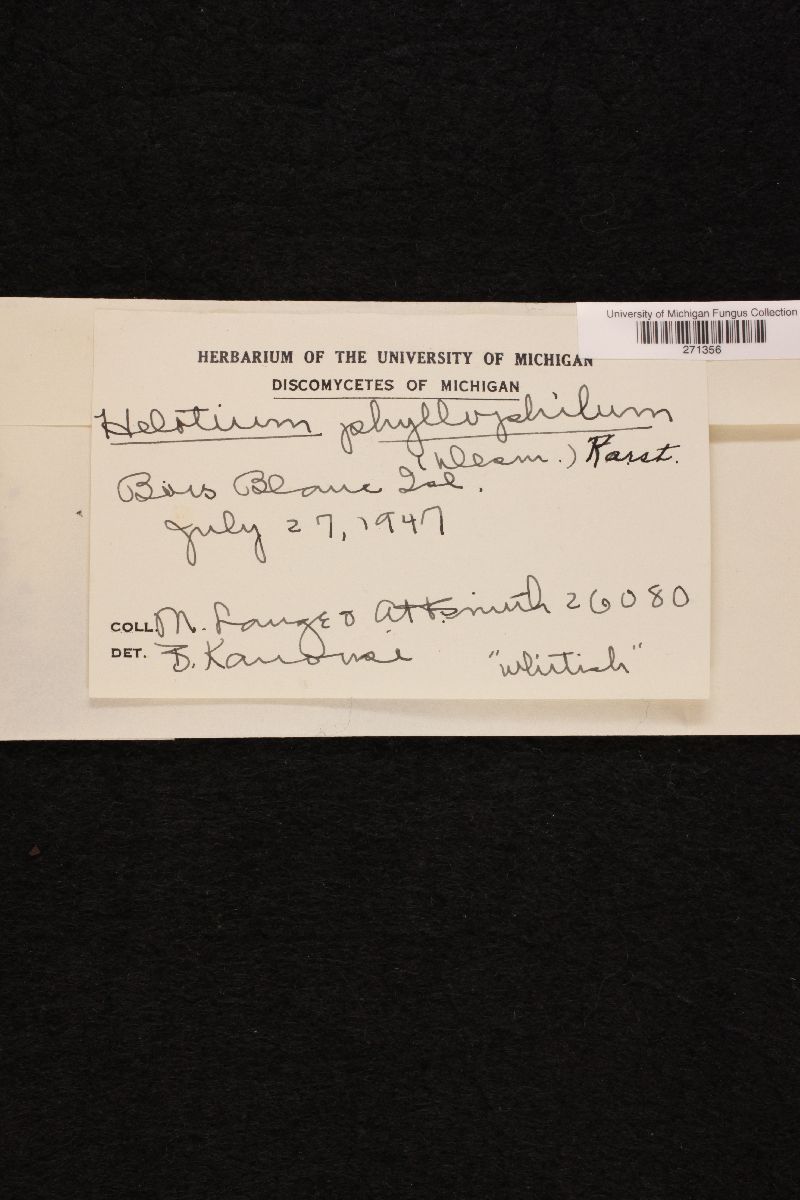 University of Michigan Fungus Collection
271356
HERBARIUM OF THE UNIVERSITY OF MICHIGAN
DISCOMYCETES OF MICHIGAN
Helotium phyllophilum
(Desm.) Karst.
Bois Blanc Isl.
July 27, 1947
COLL. M. Lange & AHSmith 26080
DET. B. Kanouse "whitish"